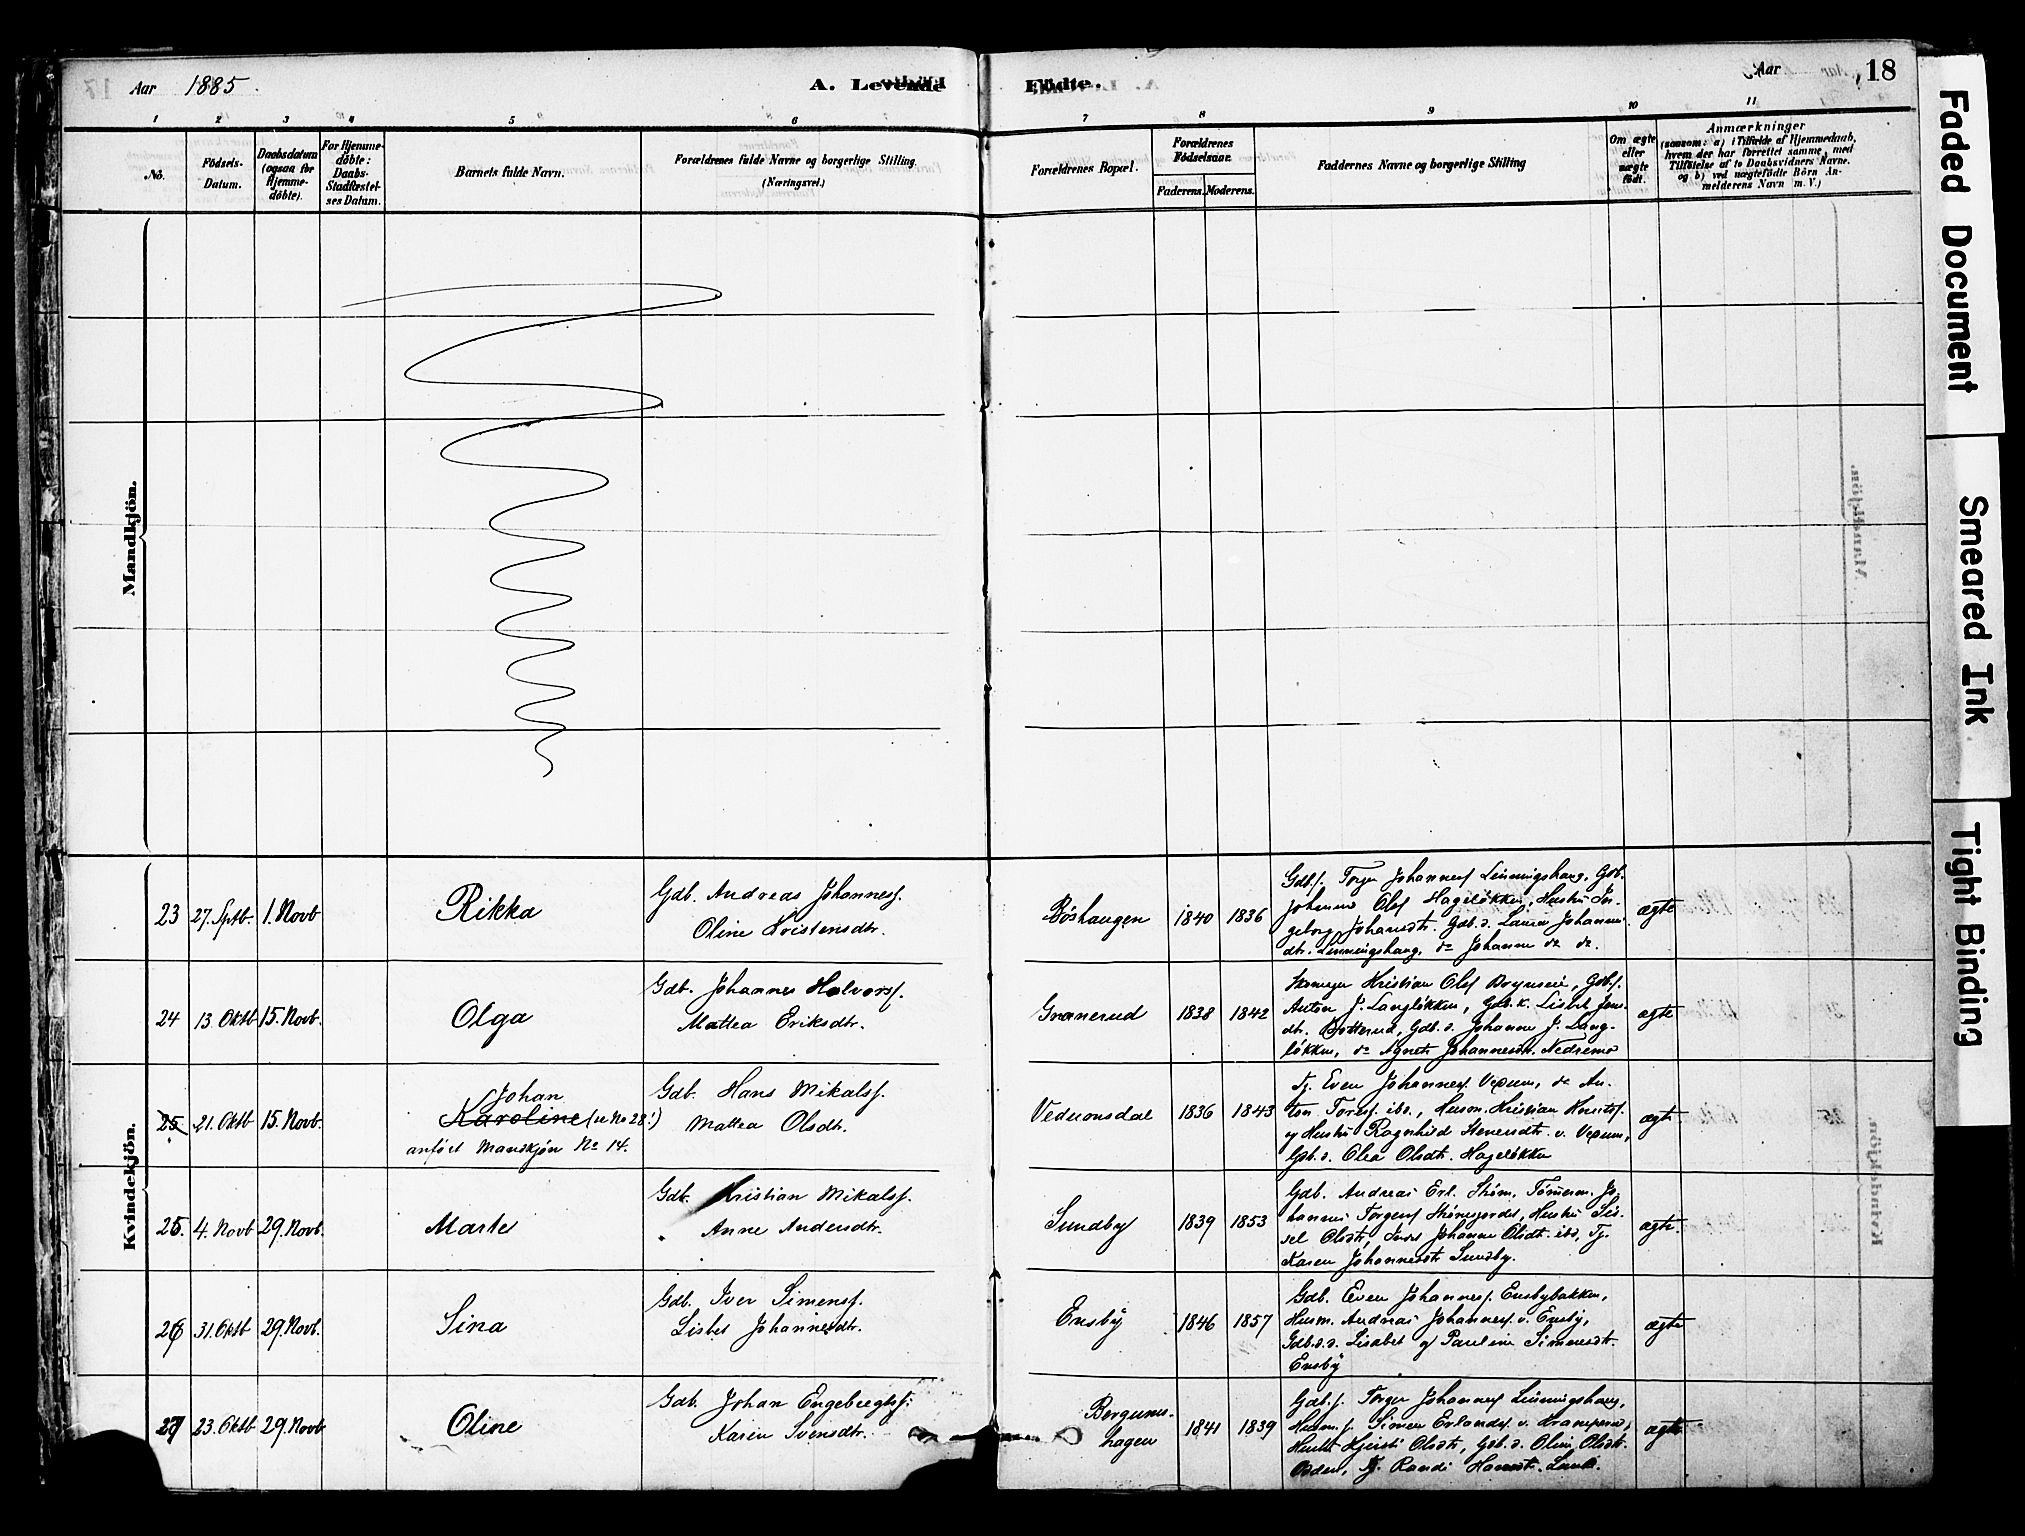 Aar 1885.
A. Levende
Födte.
Aar
18
1 2 3 4 5 6 7 8 9 10 11
No.
Födsels-
Datum.
Daabsdatum
(ogsaa for
Hjemme-
døbte).
For Hjemme-
døbte:
Daabs-
Stadfæstel-
ses Datum.
Barnets fulde Navn.
Forældrenes fulde Navne og borgerlige Stilling.
(Næringsvei.)
Forældrenes Bopæl.
Forældrenes
Födselsaar.
Faderens. Moderens.
Faddernes Navne og borgerlige Stilling
Om ægte
eller
uægte
født.
Anmærkninger
(saasom: a) i Tilfælde af Hjemmedaab,
hvem der har forrettet samme, med
Tilføielse af to Daabsvidners Navne.
og b) ved uægtefødte Börn An-
melderens Navn m. V.)
Mandkjön.
Kvindekjön.
23 27. Sptb. 1. Novb Rikka
Gdb. Andreas Johannesf.
Oline Kristensdtr.
Böshaugen 1840 1836
Gdb.f. Torger Johannesf Linningshaug, Gdb.
Johannes Olsf Hageløkken, Hustru In-
geborg Johansdtr. Gdb.d. Laura Johannes
dtr. Linningshaug, do Johanne do do.
ægte
24 13. Oktb 15. Novb. Olga
Gdb. Johannes Halvorsf.
Mattea Eriksdtr.
Granerud 1838 1842
Kristian Olsf Brynsei, Gdbf.
Anton J. Langløkken, Gdb.k. Lisbet Jens
dtr. Botterud, Gdb.d. Johanne J. Lang-
løkken, do Agnete Johannesdtr. Nedremo
ægte
25 21. Oktb 15. Novb.
Johan
Karoline (se No 28!)
anført Mandkjøn No 14.
Gdb. Hans Mikalsf.
Mattea Olsdtr.
Vedumsdal 1836 1843
Tj. Even Johannesf. Vexum, do An-
ton Toresf. ibd., Husm. Kristian Knutsf.
og Hustru Ragnhild Stenersdtr. v. Vexum,
Gdb.d. Olea Olsdtr. Hageløkken
ægte
25. 4. Novb 29. Novb. Marte
Gdb. Kristian Mikalsf.
Anne Andersdtr.
Sundby 1839 1853
Gdb. Andreas Erl. Strøm, Tømerm. Jo-
hannes Torgersf Strømsjordet, Hustru Sis-
sel Olsdtr, Johanne Olsdtr. ibd, Tj.
Karen Johannesdtr Sundby.
ægte.
26 31. Oktb 29. Novb. Sina
Gdb. Iver Simensf.
Lisbet Johannesdtr.
Ensby 1846 1857
Gdb. Even Johannesf. Ensbybakken,
Husm. Andreas Johannesf. v. Ensby,
Gdb.d.d. Lisabet og Pauline Simensdtr.
Ensby
ægte
27 23. Oktb 29. Novb Oline
Gdb. Johan Engebregtsf.
Karin Svensdtr.
Bergums-
hagen 1841 1839
Gdb.f. Torger Johannesf Linningshaug,
Husm.f. Simen Erlandsf. v. Kramperud,
Hustru Kjersti Olsdtr, Gdb.d. Oline Olsdtr.
Odden, Tj. Randi Hansdtr.
ægte
Faded Document
Smeared Ink
Tight Binding